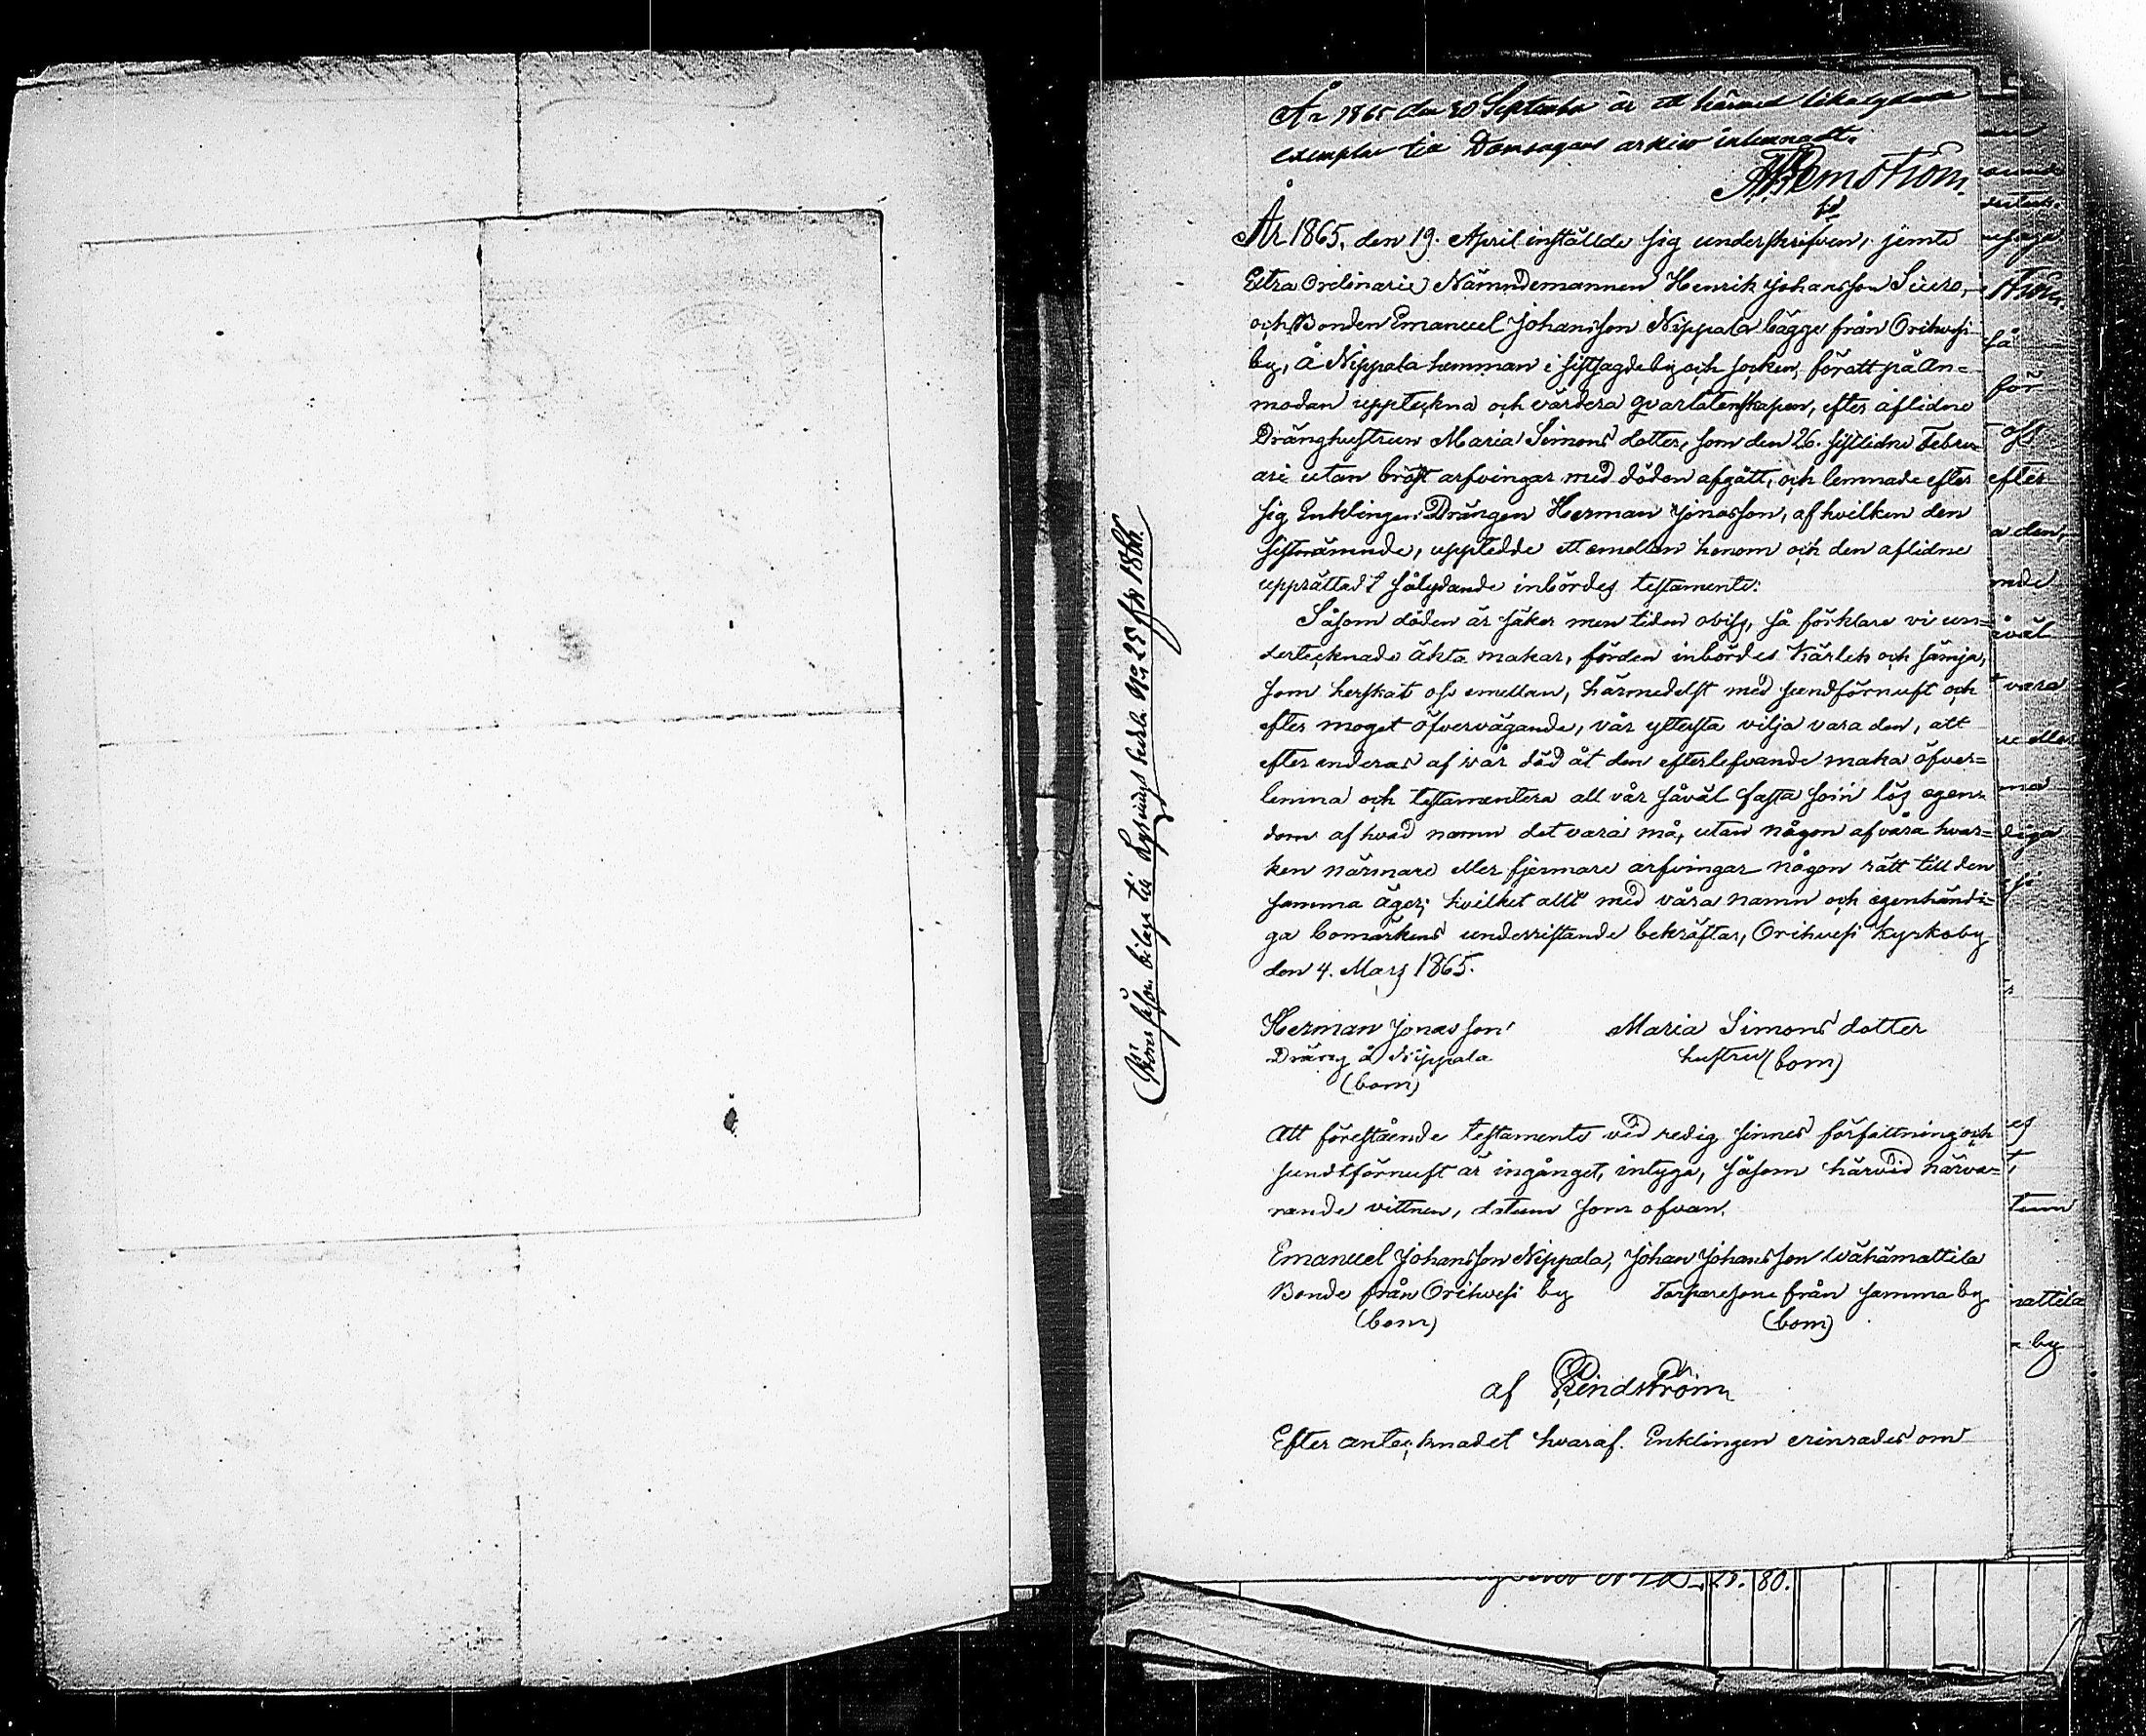 År 1865 den 30 September är ett härmed likalydande
exemplar till Domsagans arkiv inlemnadt.
År 1865, den 19. April inställde sig underskrifven, jemte
Extra Ordinarie Nämndemannen Henrik Johansson Siuro,
och Bonden Emanuel Johansson Nippala bägge från Orihvesi
by, å Nippala hemman i sistsagde by och socken, för att på An=
modan uppteckna och värdera qvarlatenskapen, efter aflidne
Dränghustrun Maria Simons dotter, som den 26. sistlidne Febru
ari utan bröst arfvingar med döden afgått, och lemnade efter
sig Enklingen Drängen Herman Jonasson, af hvilken den
sistnämnde, uppteddes ett emellan honom och den aflidne
upprättadt sålydande inbördes testamente:
Såsom döden är säker men tiden oviss, så förklare vi un=
dertecknade äkta makar, för den inbördes kärlek och sämja,
som herskat oss emellan, härmedelst med sundt förnuft och
efter moget öfvervägande, vår yttersta vilja vara den, att
efter enderas af vår död åt den efterlefvande maka öfver=
lemna och testamentera all vår såväl fasta som lös egen=
dom af hvad namn det vara må, utan någon af våra hvar=
ken närmare eller fjermare arfvingar någon rätt till den
samma äger; hvilket allt med våra namn och egenhändi=
ga bomärkens underristande bekräftas, Orihvesi Kyrkoby
den 4. Mars 1865.
Herman Jonasson Maria Simons dotter
Dräng å Nippala hustru (bom)
(bom)
Att förestående testamente vid redig sinnes författning och
sundt förnuft är ingånget, intyga, såsom härvid närva=
rande vittnen, datum som ofvan.
Emanuel Johansson Nippala, Johan Johansson Wähämattila
Bonde från Orihvesi by Torpareson från samma by
(bom) (bom)
af Lindström
Efter antecknadet hvaraf Enklingen erinrades om